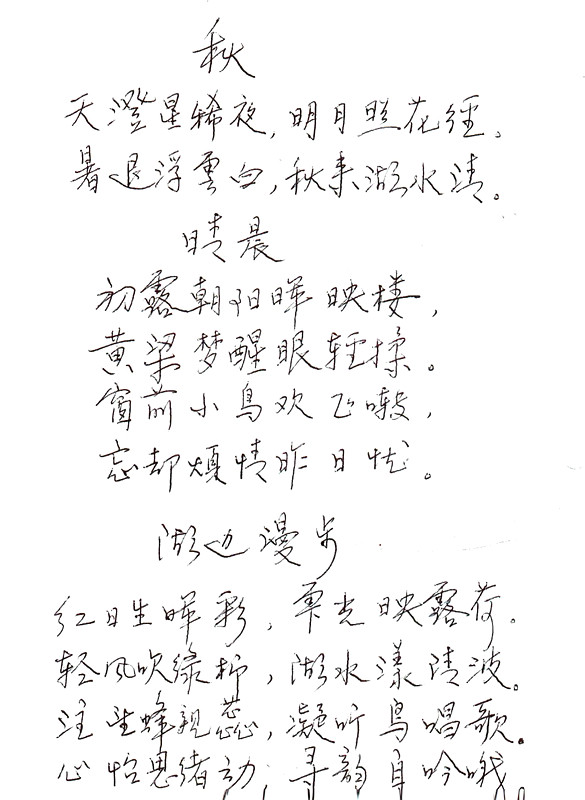 秋
天澄星稀夜,明月照花径。
暑退浮雲白,秋来湖水清。
晴晨
初露朝阳暉映楼,
黄梁梦醒眼轻揉。
窗前小鸟欢飞噭,
忘却烦情昨日忧。
湖边漫步
红日生暉彩,霞光映露荷。
轻风吹绿柳,湖水漾清波。
注望蜂親蕊,凝听鸟唱歌。
心怡思绪动,寻韵自吟哦。